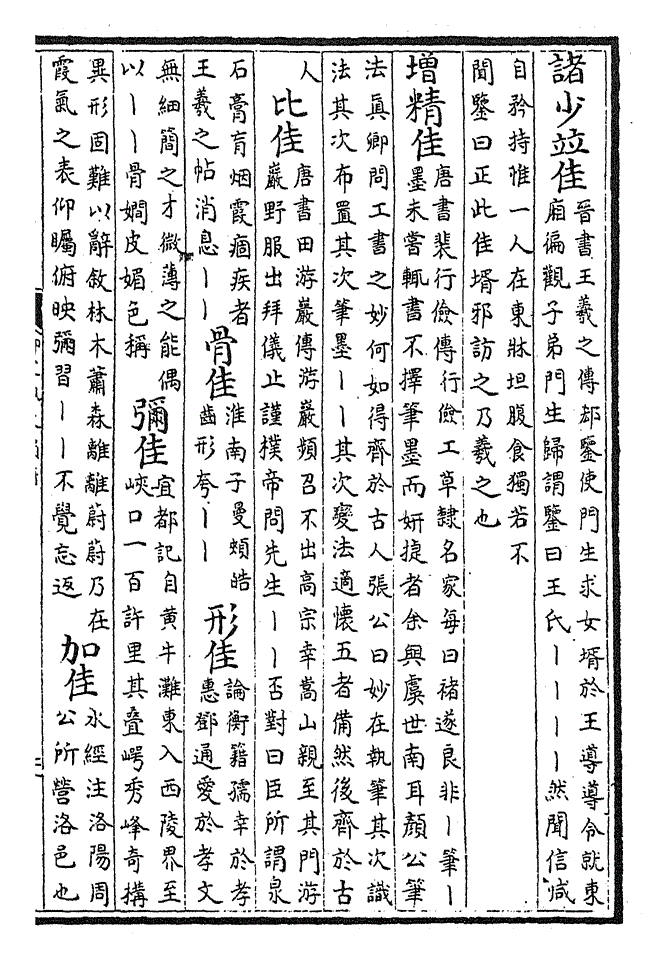 諸少竝佳
晉書王羲之傳郗鑒使門生求女壻於王導導令就東
廂徧觀子弟門生歸謂鑒曰王氏丨丨丨丨然聞信咸
自矜持惟一人在東牀坦腹食獨若不
聞鑒曰正此佳壻邪訪之乃羲之也
增精佳
唐書裴行儉傳行儉工草隸名家每曰褚遂良非丨筆丨
墨未嘗輒書不擇筆墨而妍捷者余與虞世南耳顏公筆
法眞卿問工書之妙何如得齊於古人張公曰妙在執筆其次識
法其次布置其次筆墨丨丨其次變法適懷五者備然後齊於古
人
比佳
唐書田游巖傳游巖頻召不出高宗幸嵩山親至其門游
巖野服出拜儀止謹樸帝問先生丨丨否對曰臣所謂泉
石膏肓烟霞痼疾者
王羲之帖消息丨丨
骨佳
淮南子曼頰皓
齒形夸丨丨
形佳
論衡籍孺幸於孝
惠鄧通愛於孝文
無細簡之才微薄之能偶
以丨丨骨嫺皮媚色稱
彌佳
宜都記自黃牛灘東入西陵界至
峽口一百許里其疊崿秀峰奇搆
異形固難以辭敘林木蕭森離離蔚蔚乃在
霞氣之表仰矚俯映彌習丨丨不覺忘返
加佳
水經注洛陽周
公所營洛邑也